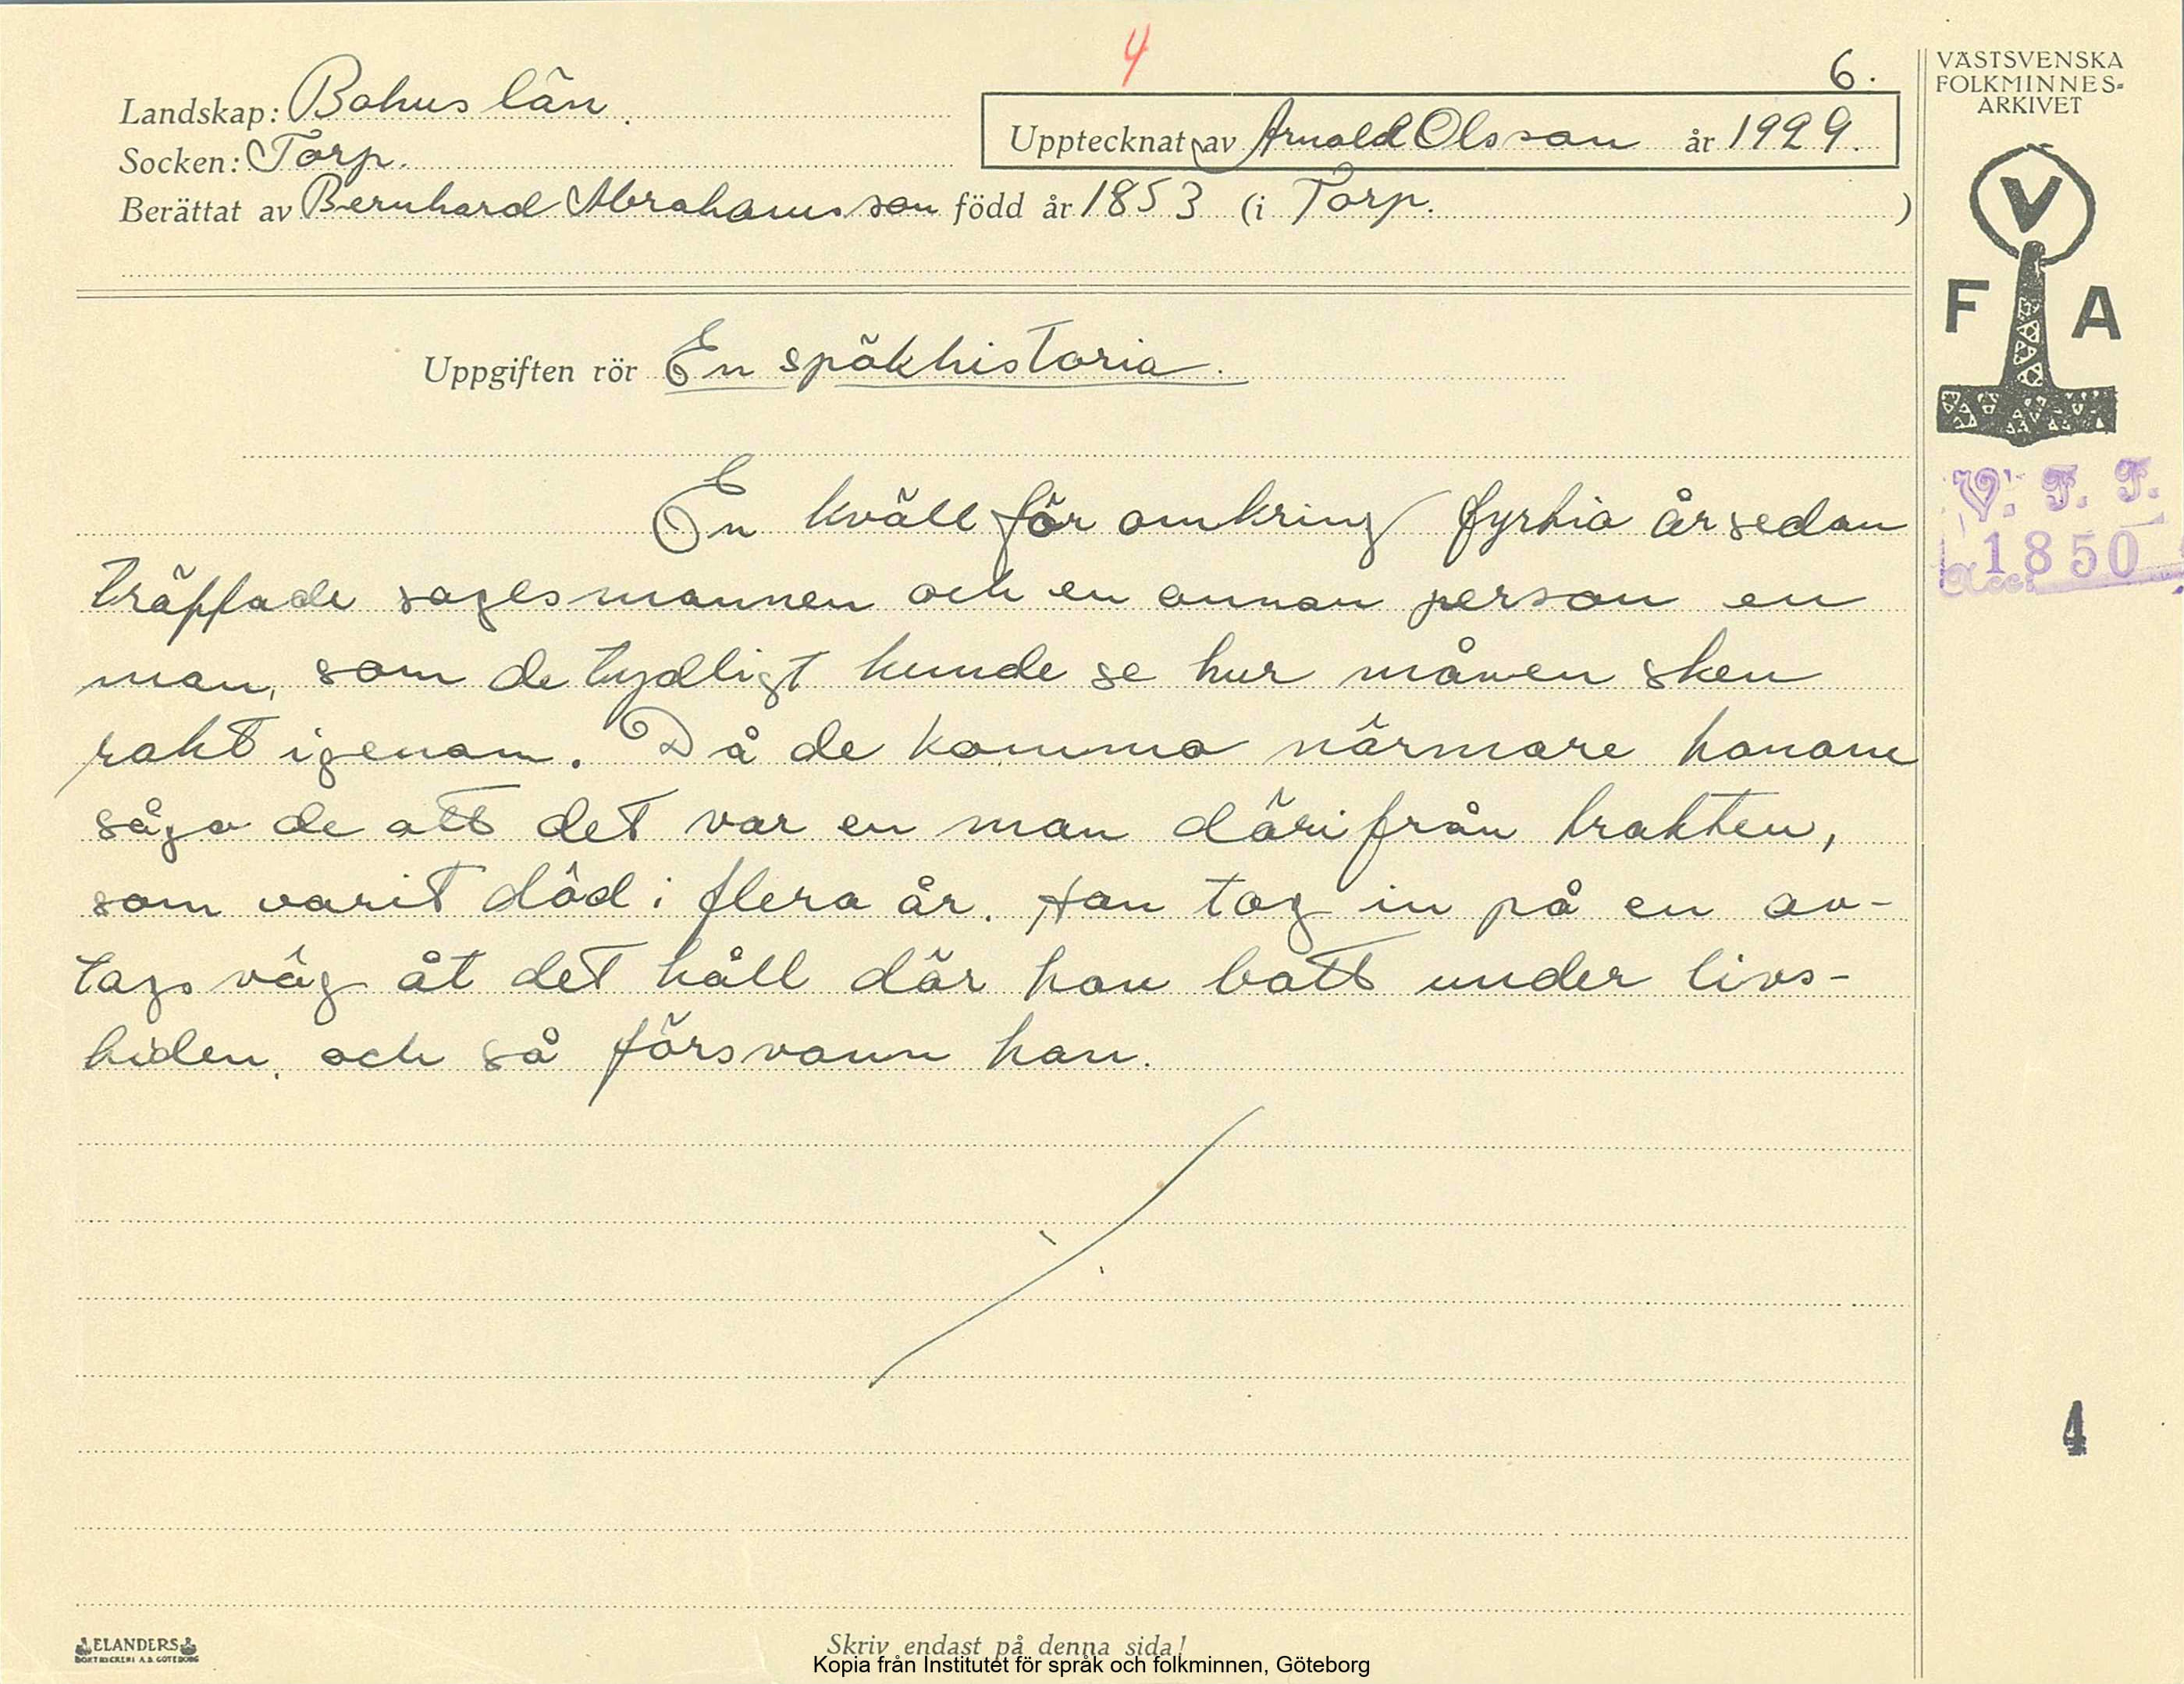 4
6.
Landskap: Bohuslän.
Upptecknat av Arnold Olsson år 1929.
Socken: Torp.
Berättat av Bernhard Abrahamsson född år 1853 (i Torp. )
VÄSTSVENSKA
FOLKMINNES-
ARKIVET
V
F A
Uppgiften rör En spökhistoria.
V. F. F.
1850
Acc.
En kväll för omkring fyrtio år sedan
träffade sagesmannen och en annan person en
man, som de tydligt kunde se hur månen sken
rakt igenom. Då de kommo närmare honom
sågo de att det var en man därifrån trakten,
som varit död i flera år. Han tog in på en av-
tagsväg åt det håll där han bott under livs-
tiden, och så försvann han.
4
ELANDERS
BOKTRYCKERI A.B. GÖTEBORG
Skriv endast på denna sida!
Kopia från Institutet för språk och folkminnen, Göteborg